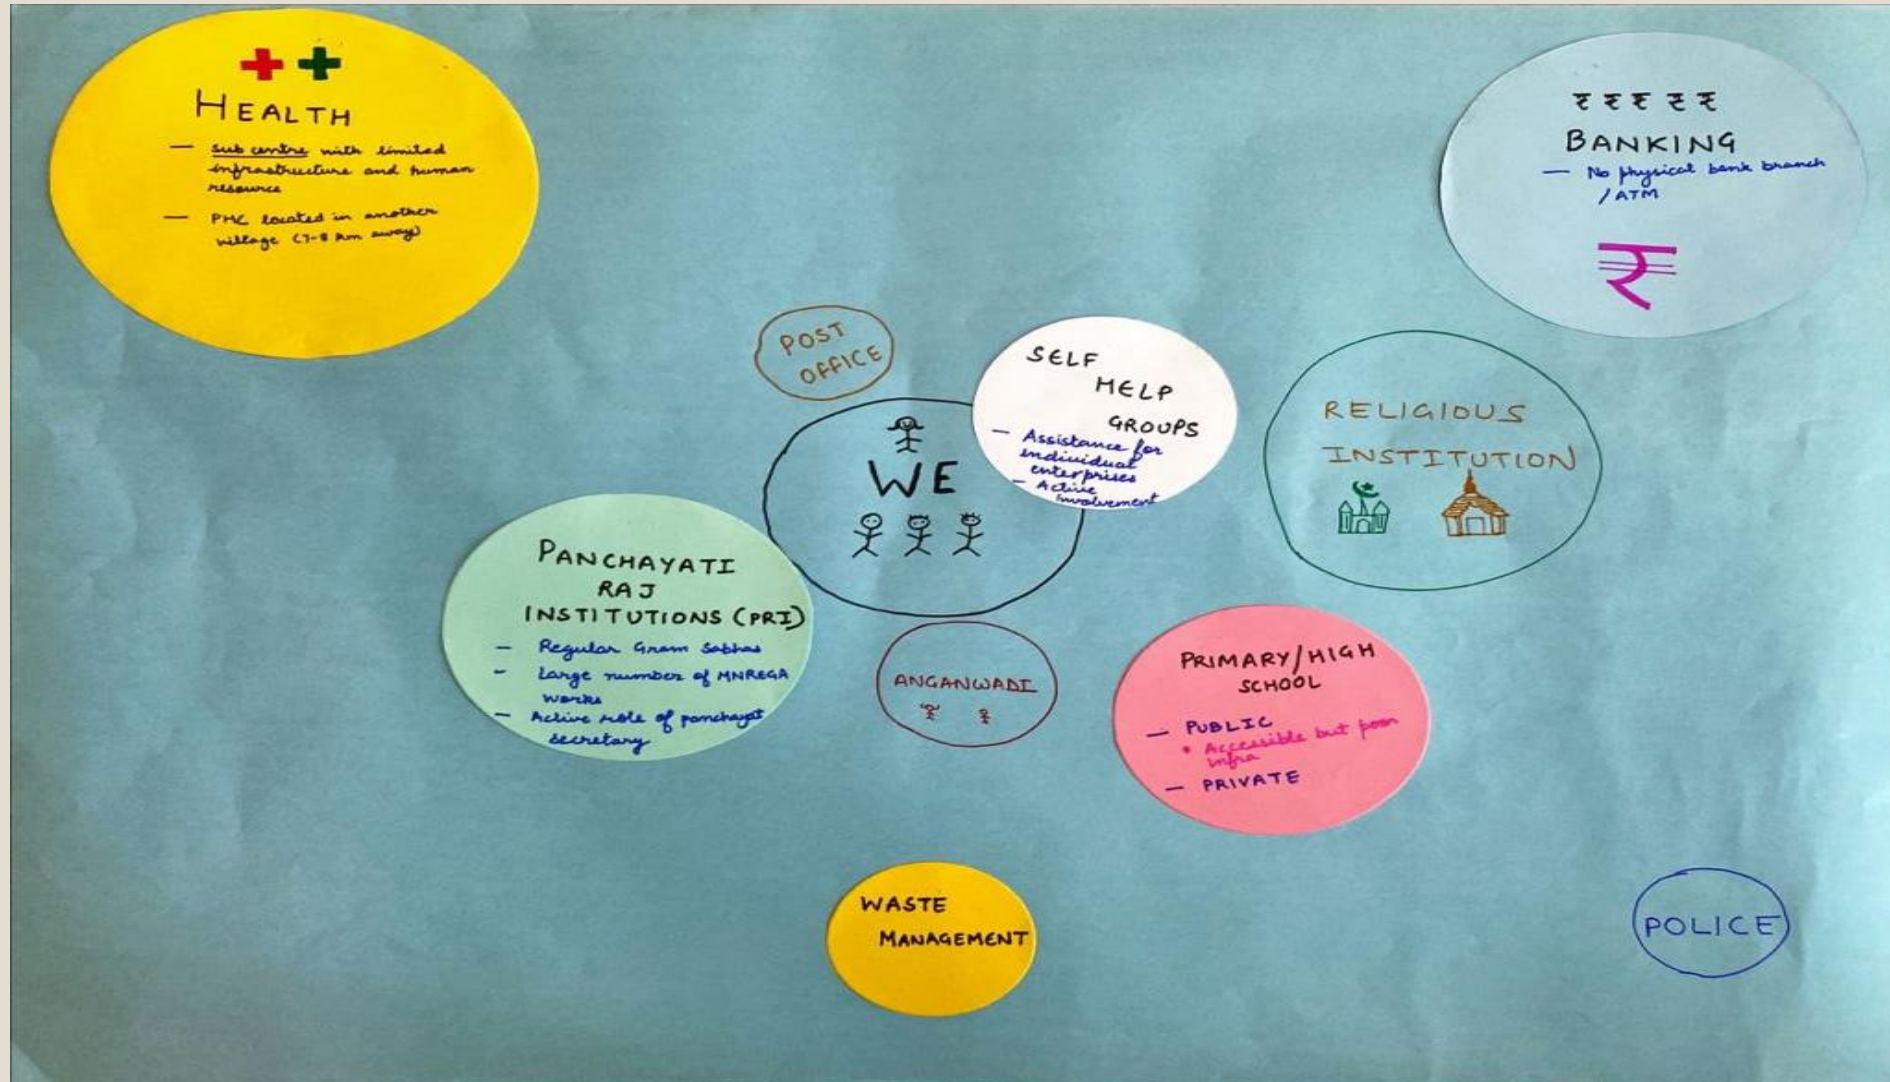 HEALTH
— sub centre with limited
infrastructure and human
resource
— PHC located in another
village (7-8 km away)
₹ ₹ ₹ ₹ ₹
BANKING
— No physical bank branch
/ATM
₹
POST
OFFICE
SELF
HELP
GROUPS
— Assistance for
individual
enterprises
— Active
involvement
WE
RELIGIOUS
INSTITUTION
PANCHAYATI
RAJ
INSTITUTIONS (PRI)
— Regular Gram Sabhas
— Large number of MNREGA
works
— Active role of panchayat
secretary
ANGANWADI
PRIMARY/HIGH
SCHOOL
— PUBLIC
• Accessible but poor
infra
— PRIVATE
WASTE
MANAGEMENT
POLICE